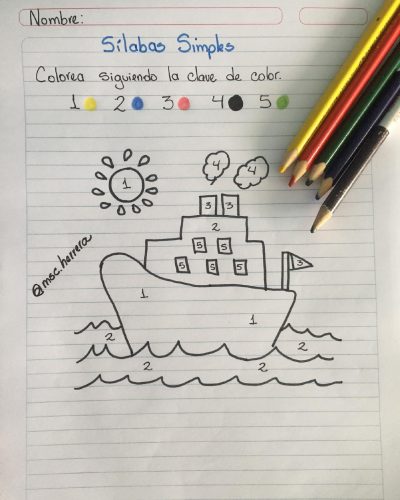 Nombre:
Sílabas Simples
Colorea siguiendo la clave de color.
1 2 3 4 5
4 4
1
3 3
2
5 5
5 5 5
3
@msc.herrera
1 1
2 2
2 2